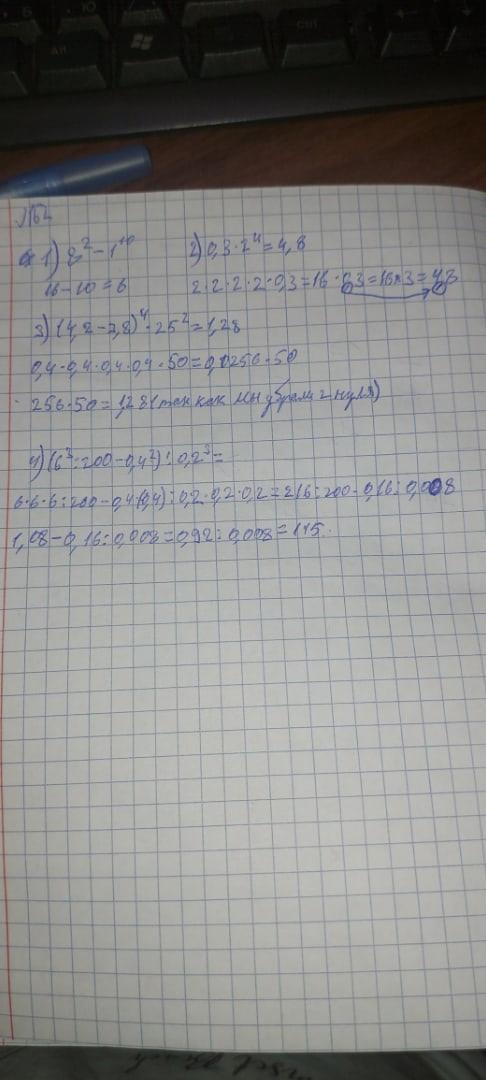 №62
1) 8² - 1¹⁰ 2) 0,3 · 2⁴ = 4,8
16 - 10 = 6 2 · 2 · 2 · 2 · 0,3 = 16 · 0,3 = 16 × 3 = 4,8
3) (4,2 - 3,8)⁴ · 25² = 1,28
0,4 · 0,4 · 0,4 · 0,4 · 50 = 0,0256 · 50
256 · 50 = 1,28 (так как мы убрали 2 нуля)
4) (6³ : 200 - 0,4²) : 0,2³ =
6 · 6 · 6 : 200 - 0,4 (0,4) : 0,2 · 0,2 · 0,2 = 216 : 200 - 0,16 : 0,008
1,08 - 0,16 : 0,008 = 0,92 : 0,008 = 115.